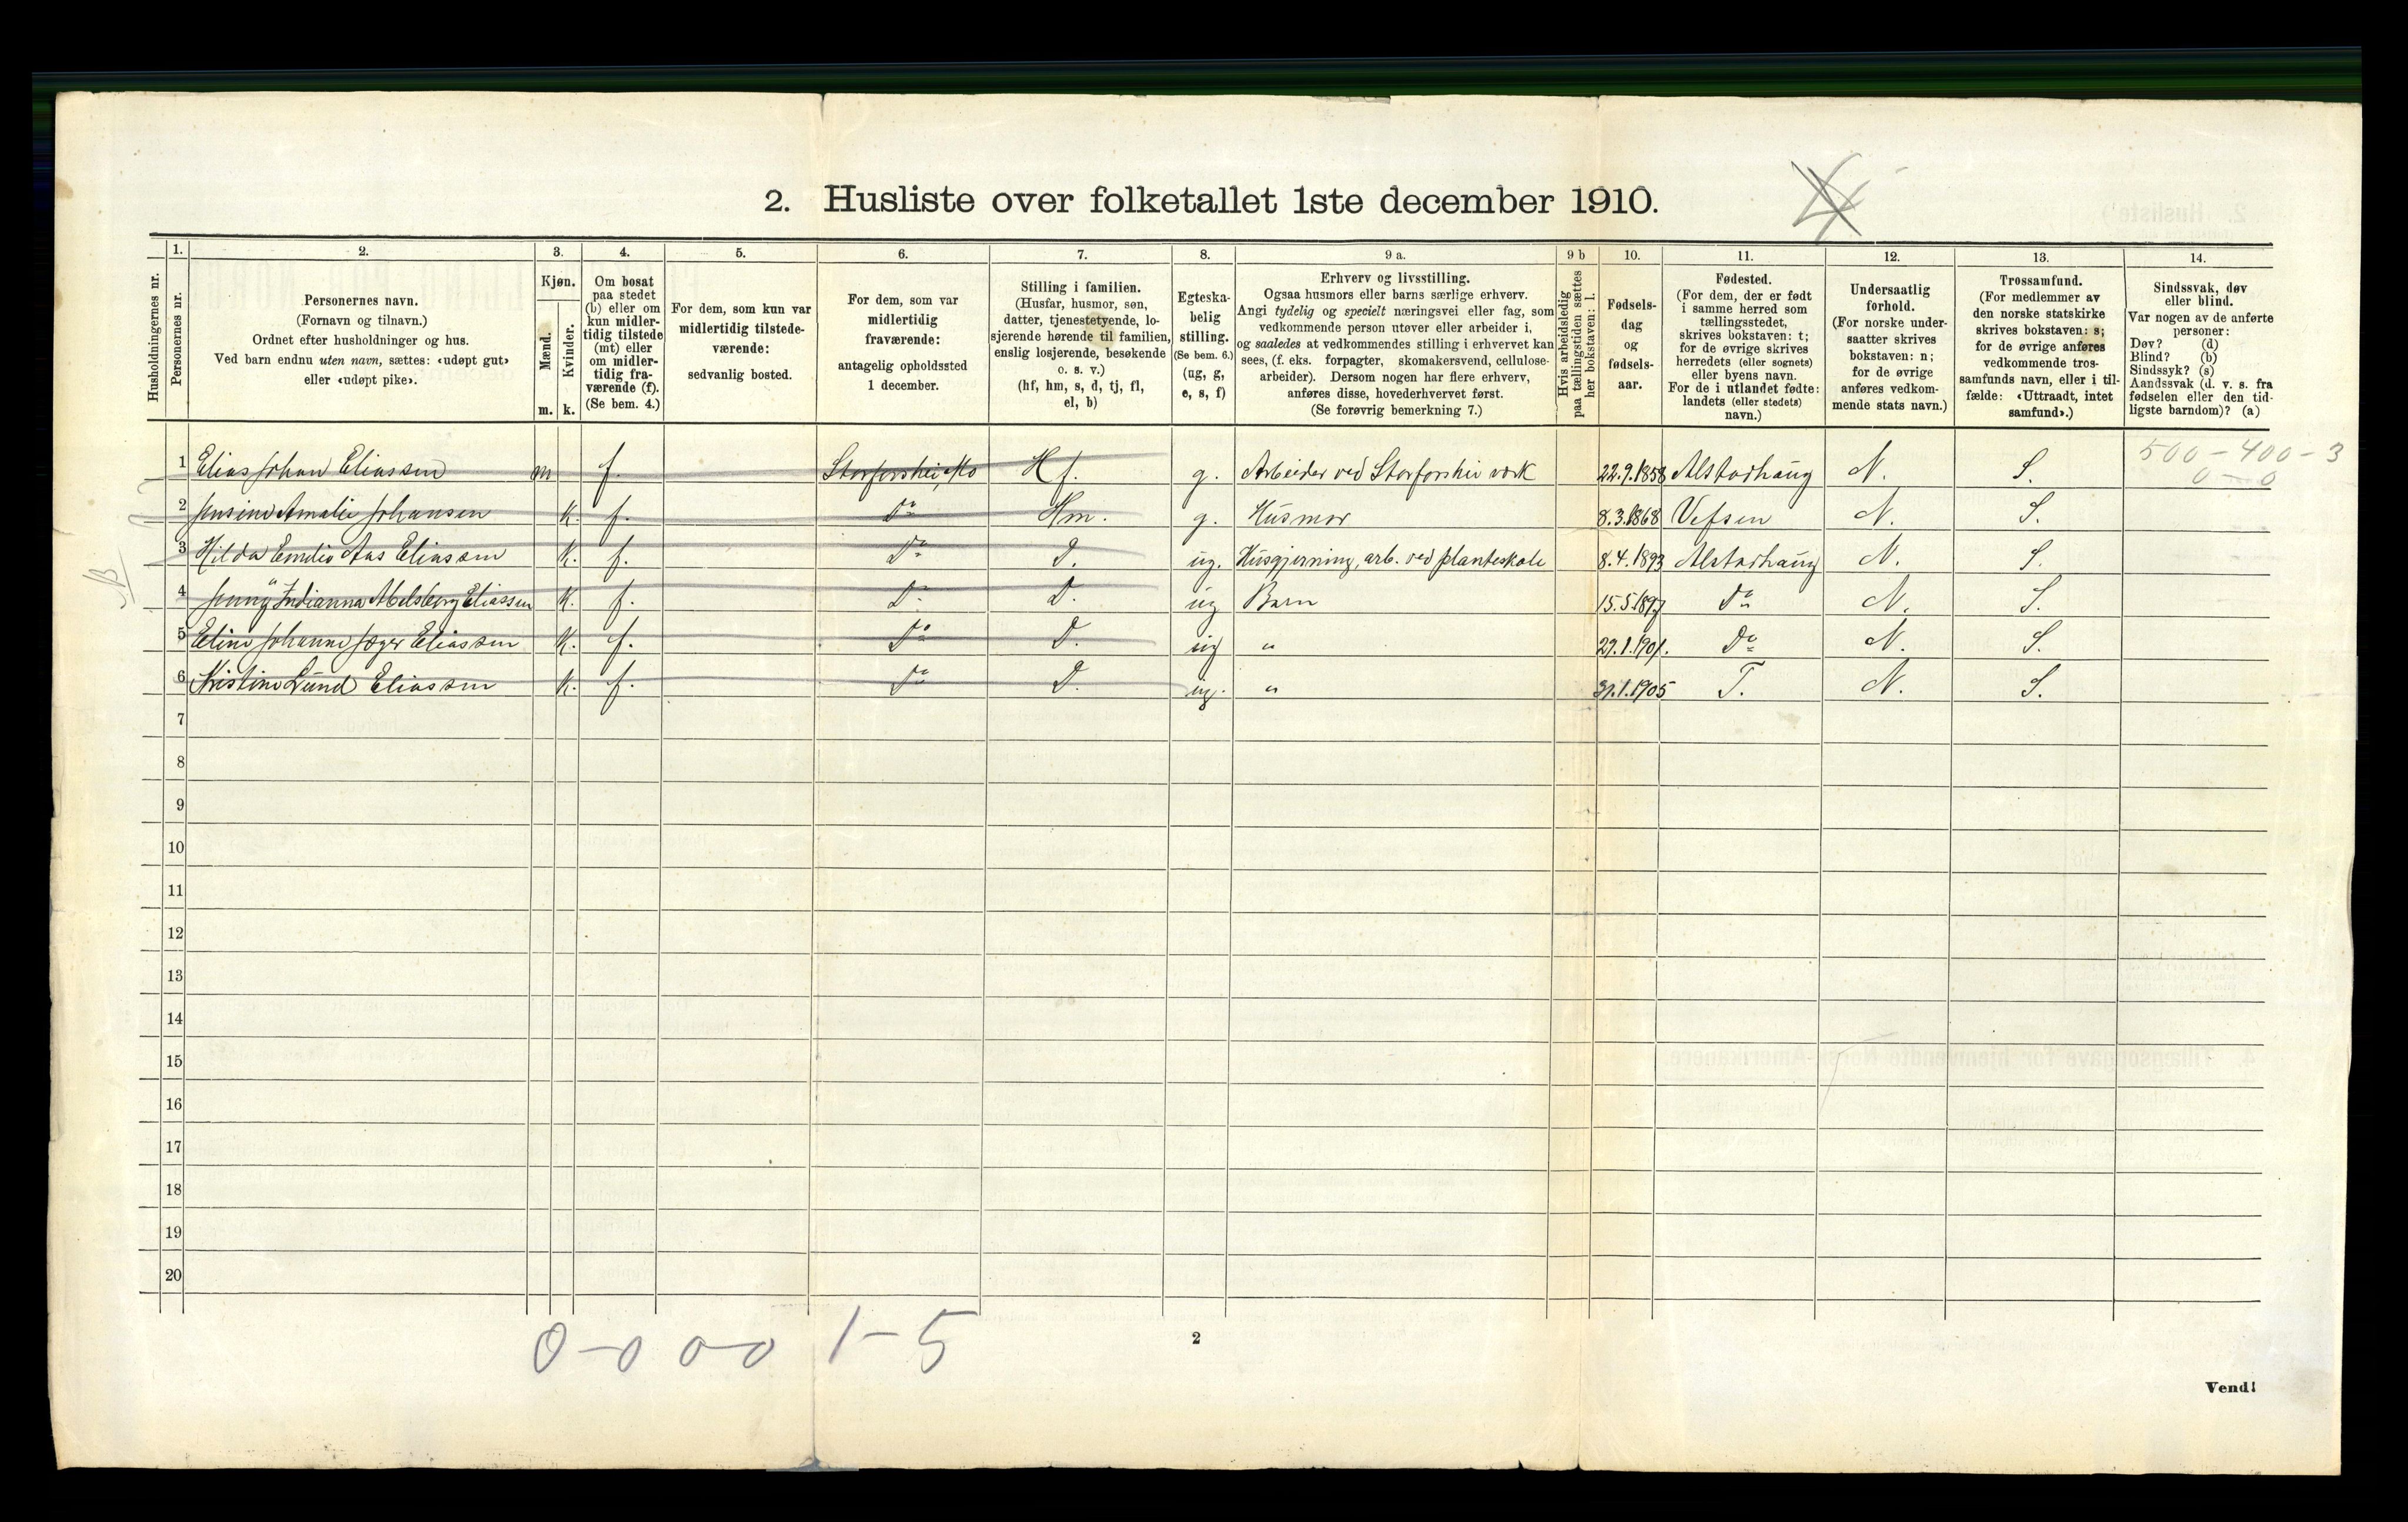 2. Husliste over folketallet 1ste december 1910.
Husholdningernes nr.
1.
Personernes nr.
2.
Personernes navn.
(Fornavn og tilnavn.)
Ordnet efter husholdninger og hus.
Ved barn endnu uten navn, sættes: «udøpt gut»
eller «udøpt pike».
3.
Kjøn.
Mænd.
Kvinder.
m. k.
4.
Om bosat
paa stedet
(b) eller om
kun midler-
tidig tilstede
(mt) eller
om midler-
tidig fra-
værende (f).
(Se bem. 4.)
5.
For dem, som kun var
midlertidig tilstede-
værende:
sedvanlig bosted.
6.
For dem, som var
midlertidig
fraværende:
antagelig opholdssted
1 december.
7.
Stilling i familien.
(Husfar, husmor, søn,
datter, tjenestetyende, lo-
sjerende hørende til familien,
enslig losjerende, besøkende
o. s. v.)
(hf, hm, s, d, tj, fl,
el, b)
8.
Egteska-
belig
stilling.
(Se bem. 6.)
(ug, g,
e, s, f)
9 a.
Erhverv og livsstilling.
Ogsaa husmors eller barns særlige erhverv.
Angi tydelig og specielt næringsvei eller fag, som
vedkommende person utøver eller arbeider i,
og saaledes at vedkommendes stilling i erhvervet kan
sees, (f. eks. forpagter, skomakersvend, cellulose-
arbeider). Dersom nogen har flere erhverv,
anføres disse, hovederhvervet først.
(Se forøvrig bemerkning 7.)
9 b
Hvis arbeidsledig
paa tællingstiden sættes
her bokstaven: l.
10.
Fødsels-
dag
og
fødsels-
aar.
11.
Fødested.
(For dem, der er født
i samme herred som
tællingsstedet,
skrives bokstaven: t;
for de øvrige skrives
herredets (eller sognets)
eller byens navn.
For de i utlandet fødte:
landets (eller stedets)
navn.)
12.
Undersaatlig
forhold.
(For norske under-
saatter skrives
bokstaven: n;
for de øvrige
anføres vedkom-
mende stats navn.)
13.
Trossamfund.
(For medlemmer av
den norske statskirke
skrives bokstaven: s;
for de øvrige anføres
vedkommende tros-
samfunds navn, eller i til-
fælde: «Uttraadt, intet
samfund».)
14.
Sindssvak, døv
eller blind.
Var nogen av de anførte
personer:
Døv? (d)
Blind? (b)
Sindssyk? (s)
Aandssvak (d. v. s. fra
fødselen eller den tid-
ligste barndom)? (a)
500 - 400 - 3
0 - 0
1 Elias Johan Eliassen m f. Storforshei, Mo Hf. g. Arbeider ved Storforshei verk 22.9.1858 Alstadhaug N. S.
2 Jensine Amalie Johansen K. f. Do Hm. g. Husmor 8.3.1868 Vefsen N. S.
3 Hilda Emilie Aas Eliassen K. f. Do D. ug. Husgjerning, arb. ved planteskole 8.4.1893 Alstadhaug N. S.
4 Jenny Indianna Eliassen K. f. Do D. ug Barn 15.5.1897 Do N. S.
5 Eline Johanne Eliassen K. f. Do D. ug " 29.1.1901. Do N. S.
6 Kristine Lund Eliassen K. f. Do D. ug. " 31.1.1905 T. N. S.
7
8
9
10
11
12
13
14
15
16
17
18
19
20
0-0 0-0 1-5
2
Vend!